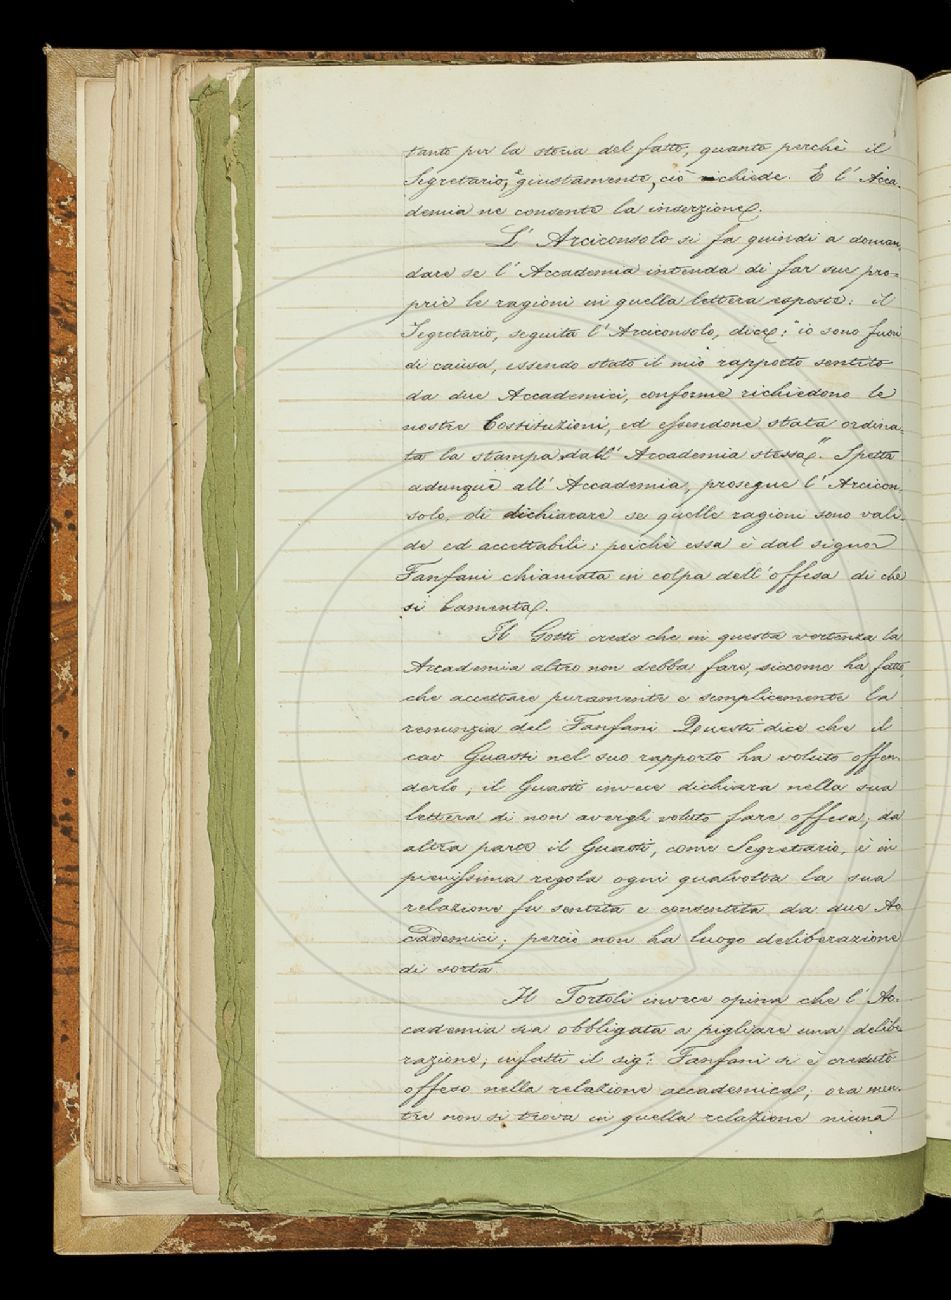 tanto per la storia del fatto, quanto perchè il
Segretario, e giustamente, ciò richiede. E l'Acca-
demia ne consente la inserzione.
L'Arciconsolo si fa quindi a doman-
dare se l'Accademia intenda di far sue pro-
prie le ragioni in quella lettera esposte: il
Segretario, seguita l'Arciconsolo, dice: "io sono fuori
di causa, essendo stato il mio rapporto sentito
da due Accademici, conforme richiedono le
nostre Costituzioni, ed essendone stata ordina-
ta la stampa dall'Accademia stessa". Spetta
adunque all'Accademia, prosegue l'Arcicon-
solo, di dichiarare se quelle ragioni sono vali-
de ed accettabili; poichè essa è dal signor
Fanfani chiamata in colpa dell'offesa di che
si lamenta.
Il Gotti crede che in questa vertenza la
Accademia altro non debba fare, siccome ha fatto,
che accettare puramente e semplicemente la
renunzia del Fanfani. Questi dice che il
cav Guasti nel suo rapporto ha voluto offen-
derlo; il Guasti invece dichiara nella sua
lettera di non avergli voluto fare offesa; da
altra parte il Guasti, come Segretario, è in
pienissima regola ogni qualvolta la sua
relazione fu sentita e consentita da due Ac-
cademici; perciò non ha luogo deliberazione
di sorta
Il Tortoli invece opina che l'Ac-
cademia sia obbligata a pigliare una delibe
razione; infatti il sig.r Fanfani si è creduto
offeso nella relazione accademica; ora men-
tre non si trova in quella relazione niuna